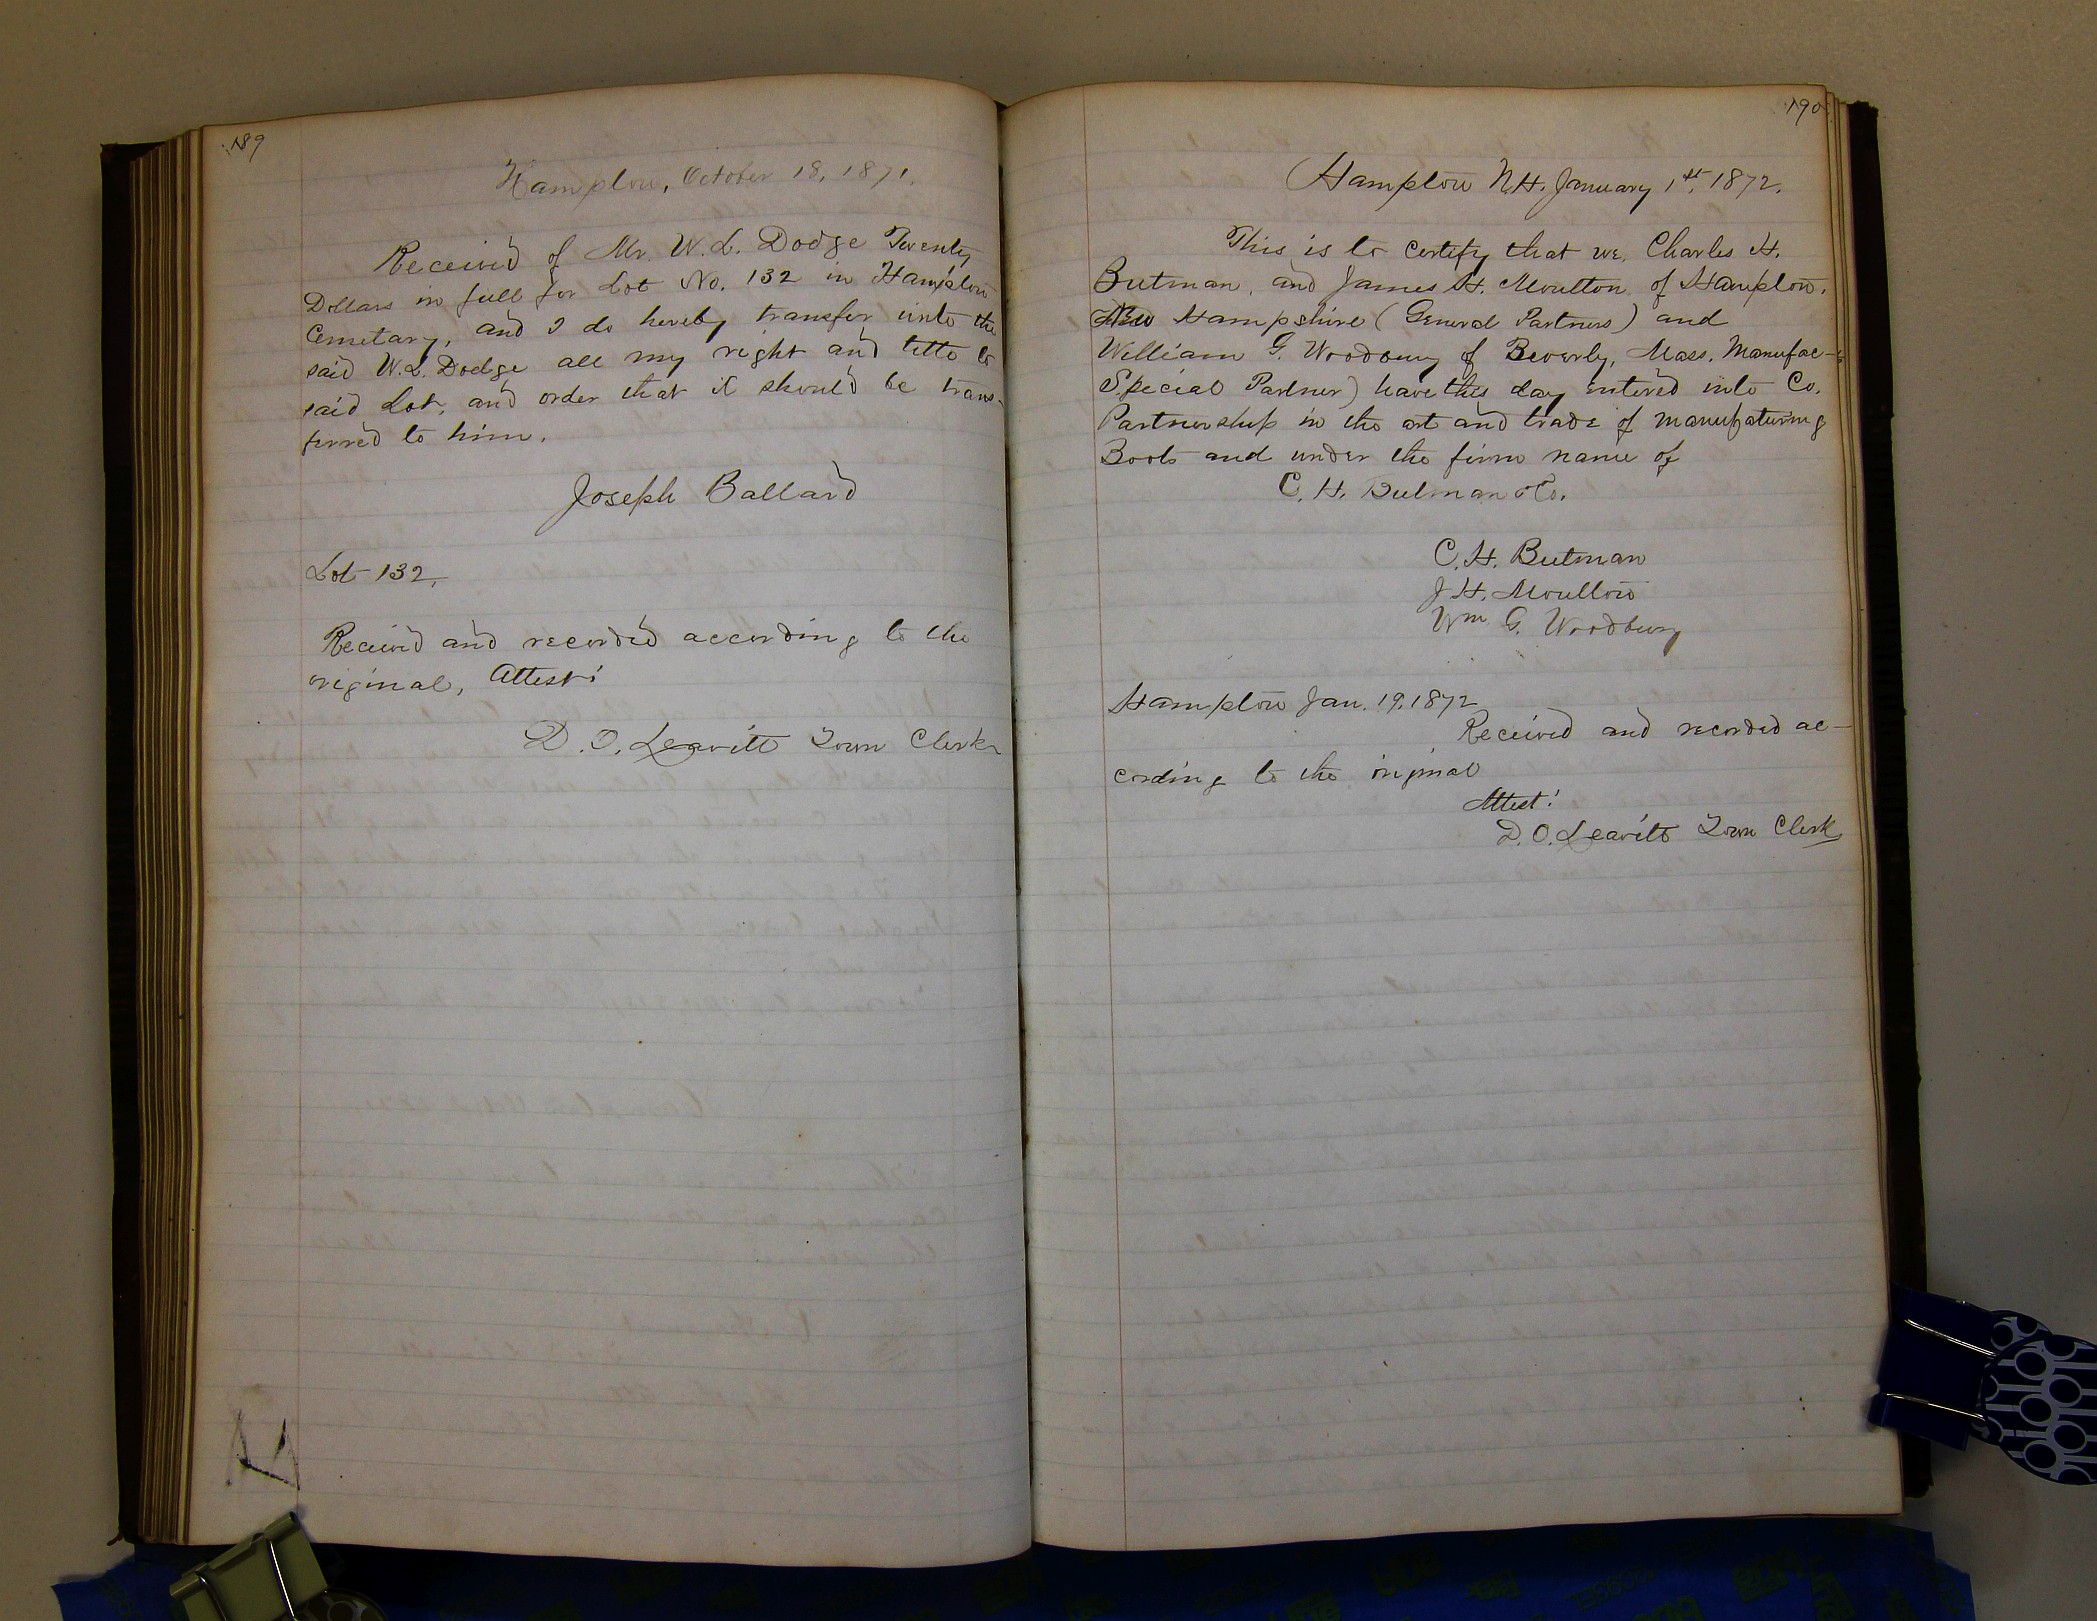 189
Hampton, October 18, 1871.
Received of Mr. W. L. Dodge Twenty
Dollars in full for Lot No. 132 in Hampton
Cemetary, and I do hereby transfer unto the
said W. L. Dodge all my right and title to
said Lot, and order that it should be trans-
ferred to him.
Joseph Ballard
Lot 132,
Received and recorded according to the
original, Attest:
D. O. Leavitt Town Clerk
190
Hampton N.H. January 1st, 1872.
This is to certify that we, Charles H.
Butman, and James H. Moulton of Hampton,
New Hampshire (General Partners) and
William G. Woodbury of Beverly, Mass. Manufac-
Special Partner) have this day entered into Co.
Partnership in the art and trade of manufaturing
Boots and under the firm name of
C. H. Butman & Co.
C. H. Butman
J. H. Moulton
Wm G. Woodbury
Hampton Jan. 19, 1872
Received and recorded ac-
cording to the original
Attest:
D. O. Leavitt Town Clerk